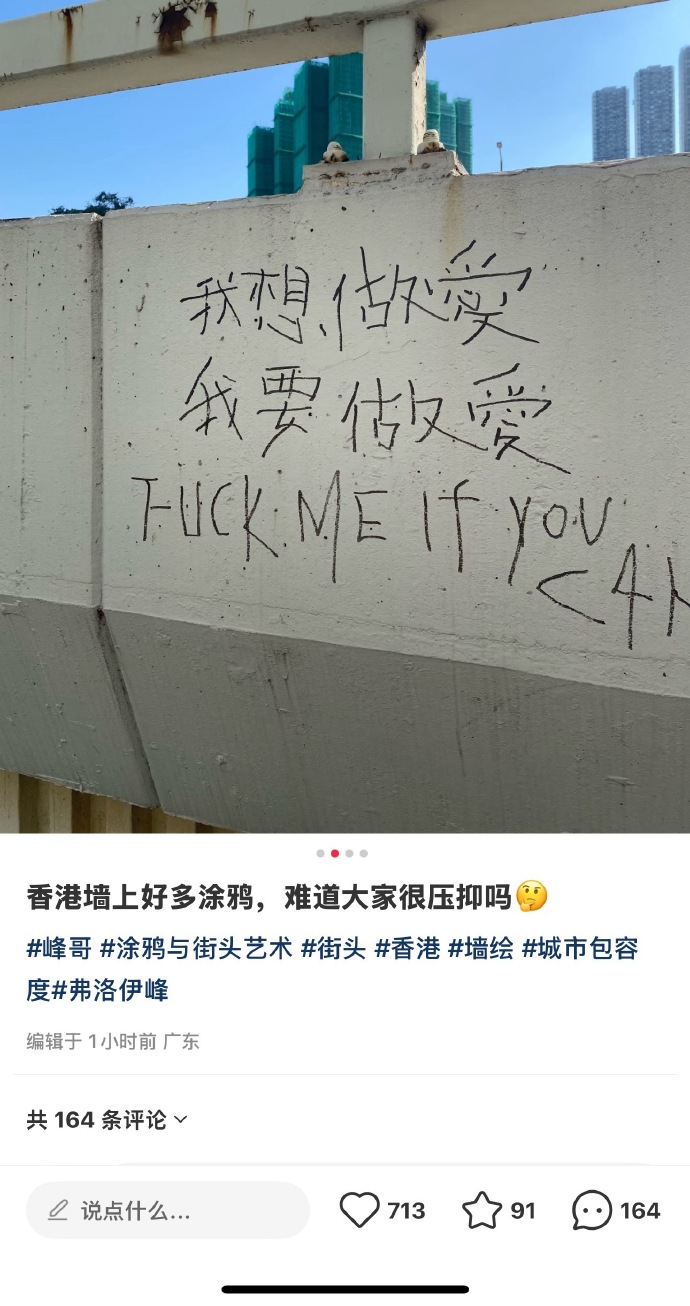 我想做愛
我要做愛
FUCK ME If YOU
CAN
香港墙上好多涂鸦，难道大家很压抑吗🤔
#峰哥 #涂鸦与街头艺术 #街头 #香港 #墙绘 #城市包容
度#弗洛伊峰
编辑于 1小时前 广东
共 164 条评论
说点什么... 713 91 164